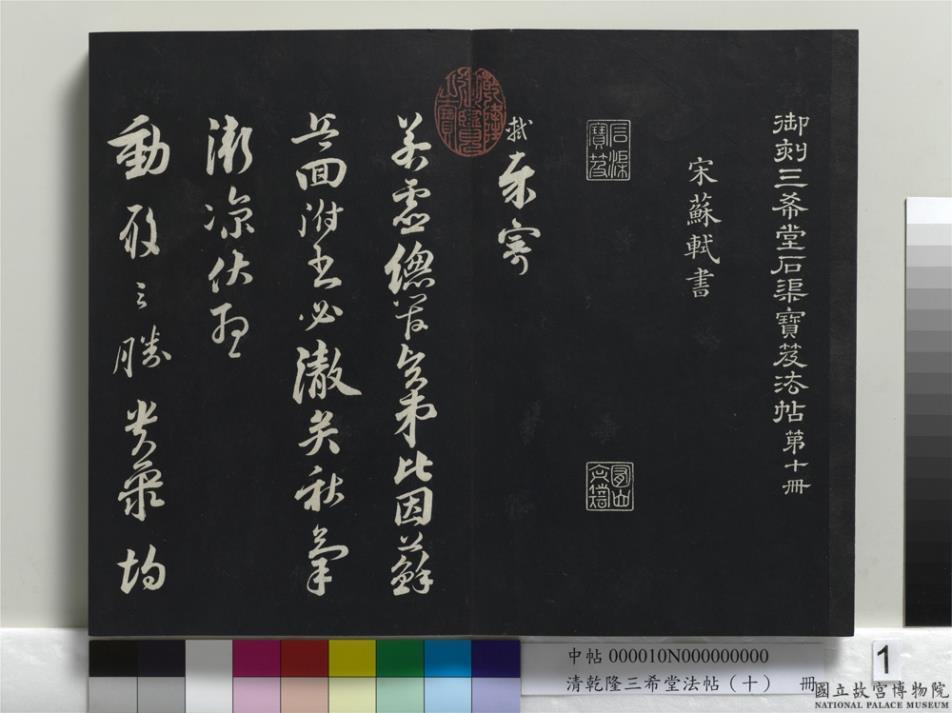 御刻三希堂石渠寶笈法帖第十冊
宋蘇軾書
石渠寶笈
軾奉寄
若虛總管賢弟比因蘇
兵回附書必澈矣秋氣
漸涼伏惟
動履之勝貴眾均
中帖 000010N000000000
清乾隆三希堂法帖（十） 冊
1
國立故宮博物院
NATIONAL PALACE MUSEUM